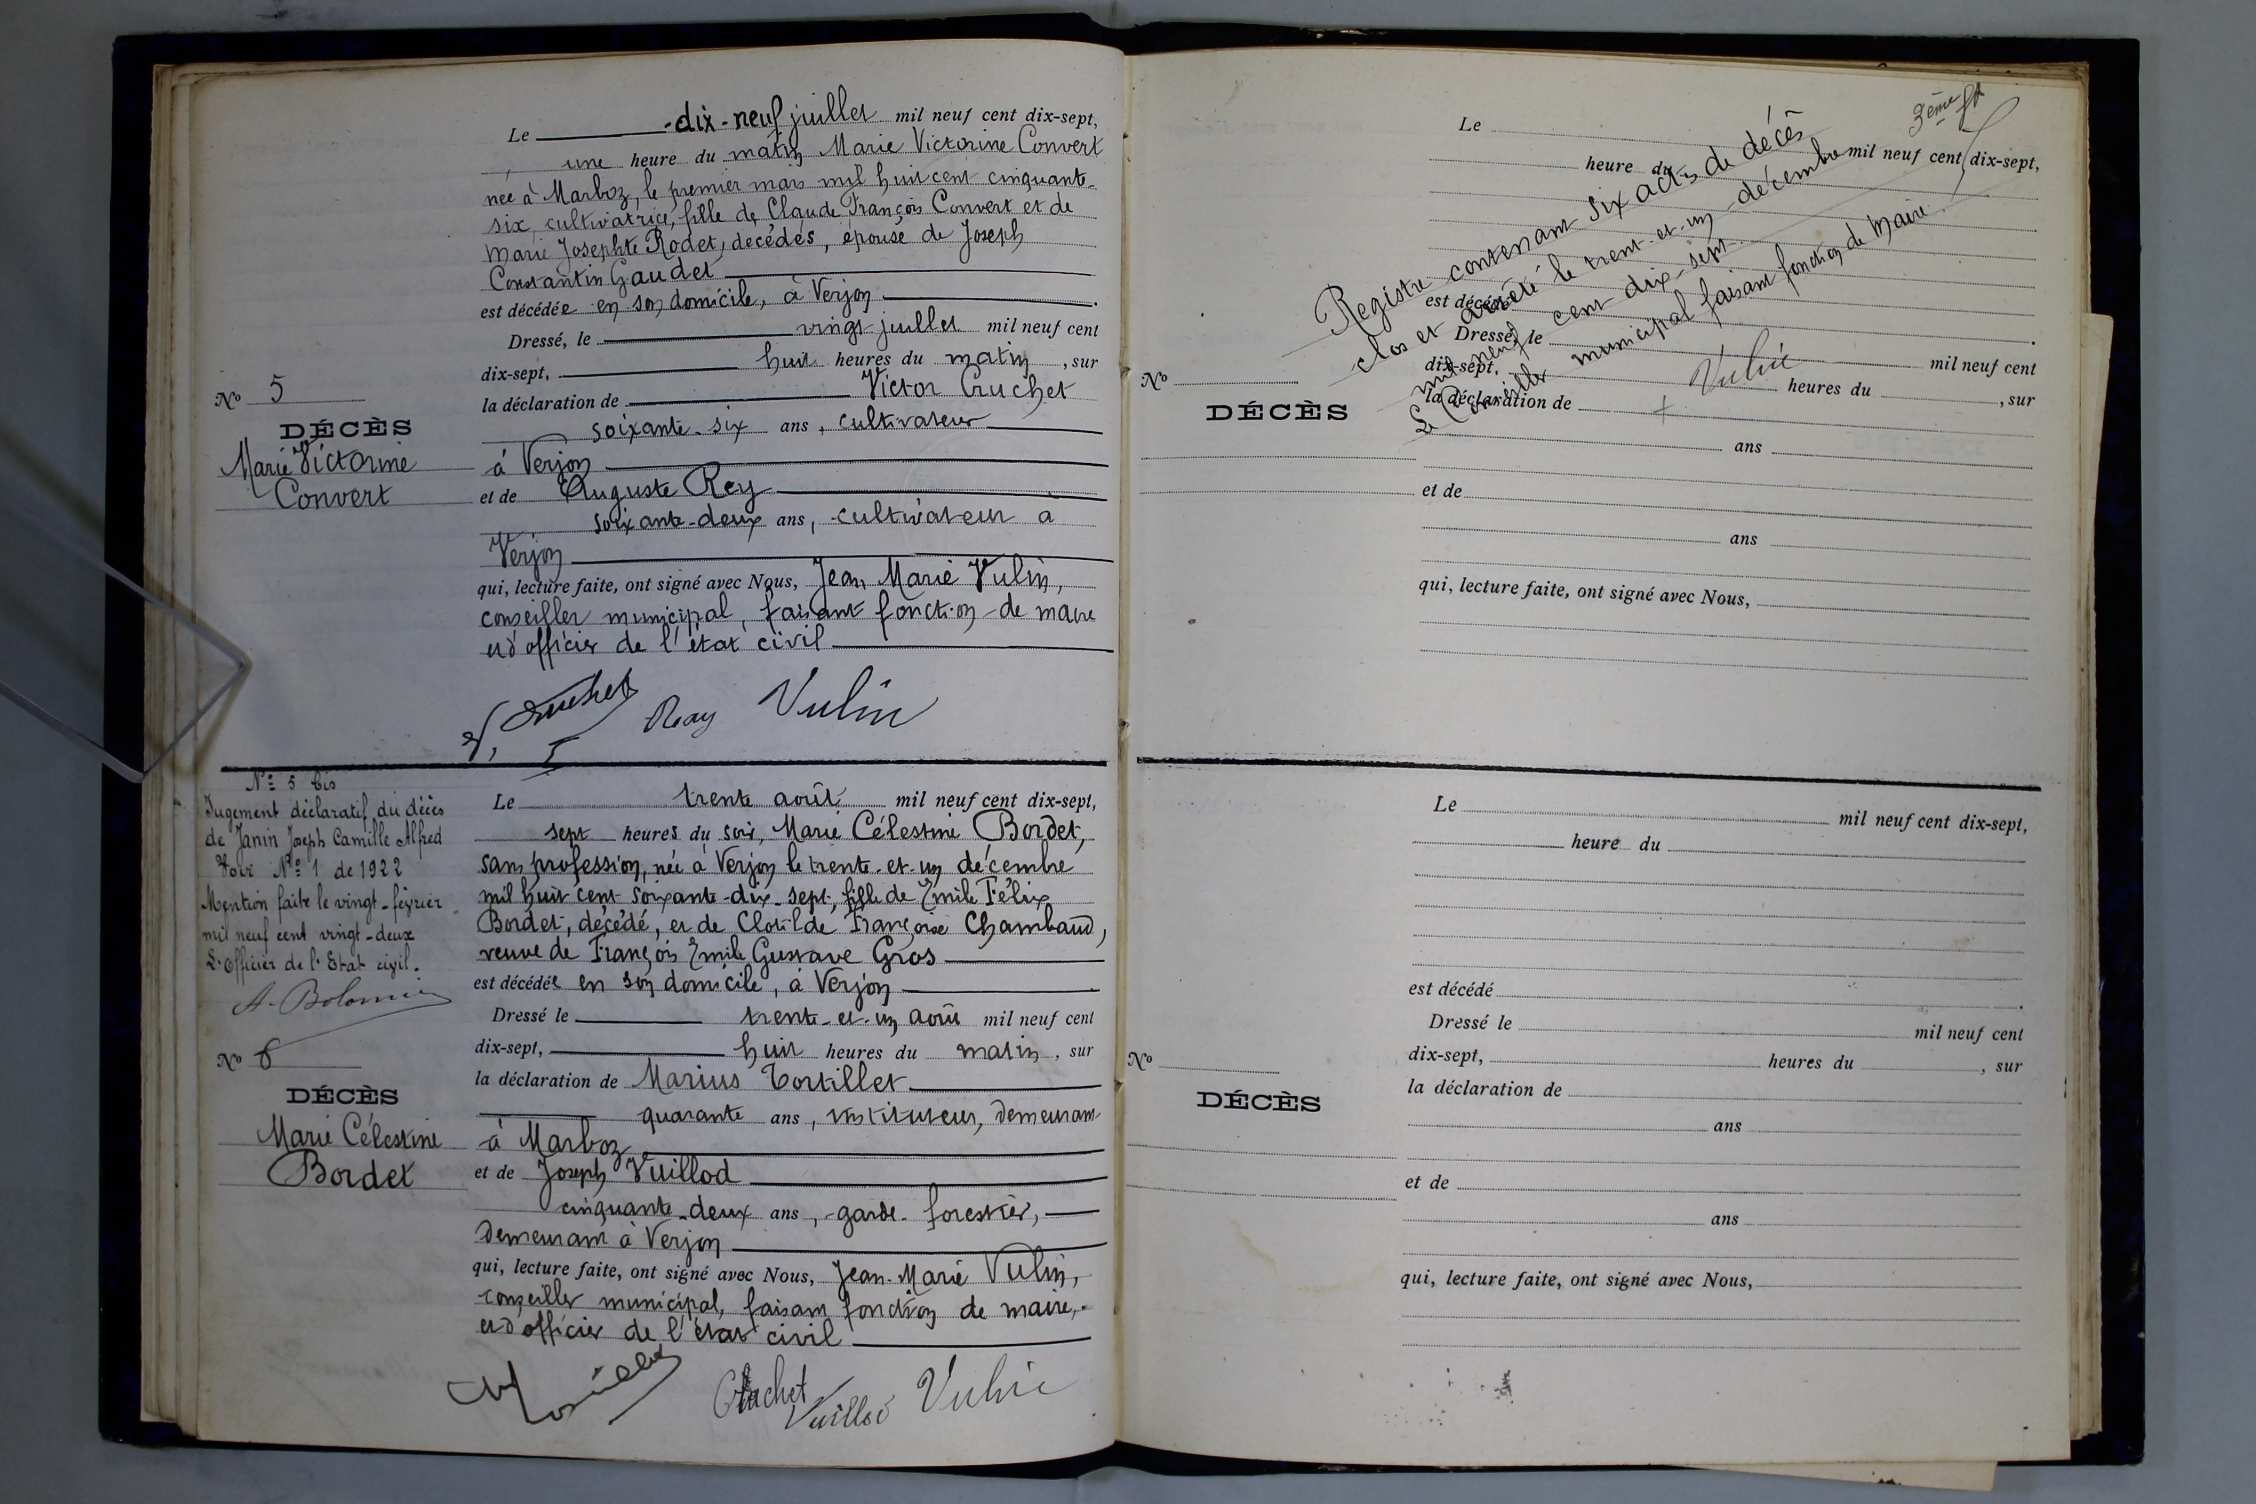 Le dix-neuf juillet mil neuf cent dix-sept,
une heure du matin Marie Victorine Convert
née à Marboz, le premier mars mil huit cent cinquante-
six, cultivatrice, fille de Claude François Convert et de
Marie Josephte Rodet, décédés, épouse de Joseph
Constantin Gaudet
est décédée en son domicile, à Verjon.
Dressé, le vingt juillet mil neuf cent
dix-sept, huit heures du matin, sur
la déclaration de Victor Cruchet
soixante-six ans, cultivateur
à Verjon
et de Auguste Rey
soixante-deux ans, cultivateur à
Verjon
qui, lecture faite, ont signé avec Nous, Jean Marie Vulin,
conseiller municipal, faisant fonction de maire
et d'officier de l'état civil
Rey Vulin
No 5
DÉCÈS
Marie Victorine
Convert
No 5 bis
Jugement déclaratif du décès
de Janin Joseph Camille Alfred
Voir No 1 de 1922
Mention faite le vingt-février
mil neuf cent vingt-deux
L'Officier de l'Etat civil.
No 6
DÉCÈS
Marie Célestine
Bordet
Le trente août mil neuf cent dix-sept,
sept heures du soir, Marie Célestine Bordet,
sans profession, née à Verjon le trente-et-un décembre
mil huit cent soixante-dix-sept, fille de Emile Félix
Bordet, décédé, et de Clotilde Françoise Chambaud,
veuve de François Emile Gustave Gros
est décédée en son domicile, à Verjon
Dressé le trente-et-un août mil neuf cent
dix-sept, huit heures du matin, sur
la déclaration de Marius Tortillet
quarante ans, instituteur, demeurant
à Marboz
et de Joseph Vuillod
cinquante-deux ans, garde-forestier,
demeurant à Verjon
qui, lecture faite, ont signé avec Nous, Jean-Marie Vulin,
conseiller municipal, faisant fonction de maire,
et d'officier de l'état civil
Cruchet Vuillod Vulin
3ème
Registre contenant six actes de décès
clos et arrêté le trent-et-un décembre
mil neuf cent dix-sept.
Le Conseiller municipal faisant fonction de Maire
Vulin
Le
heure du mil neuf cent dix-sept,
est décédé
Dressé, le mil neuf cent
dix-sept, heures du , sur
la déclaration de
ans
et de
ans
qui, lecture faite, ont signé avec Nous,
No
DÉCÈS
Le mil neuf cent dix-sept,
heure du
est décédé
Dressé le mil neuf cent
dix-sept, heures du , sur
la déclaration de
ans
et de
ans
qui, lecture faite, ont signé avec Nous,
No
DÉCÈS